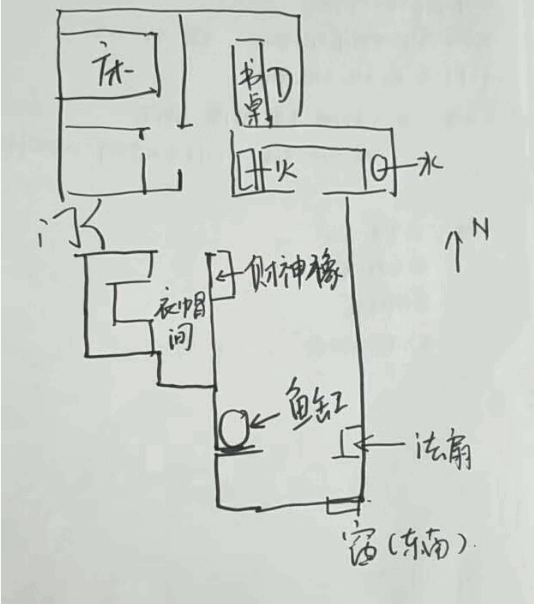 床
书桌
火
水
门
N
财神像
衣帽间
鱼缸
法扇
窗(东南).